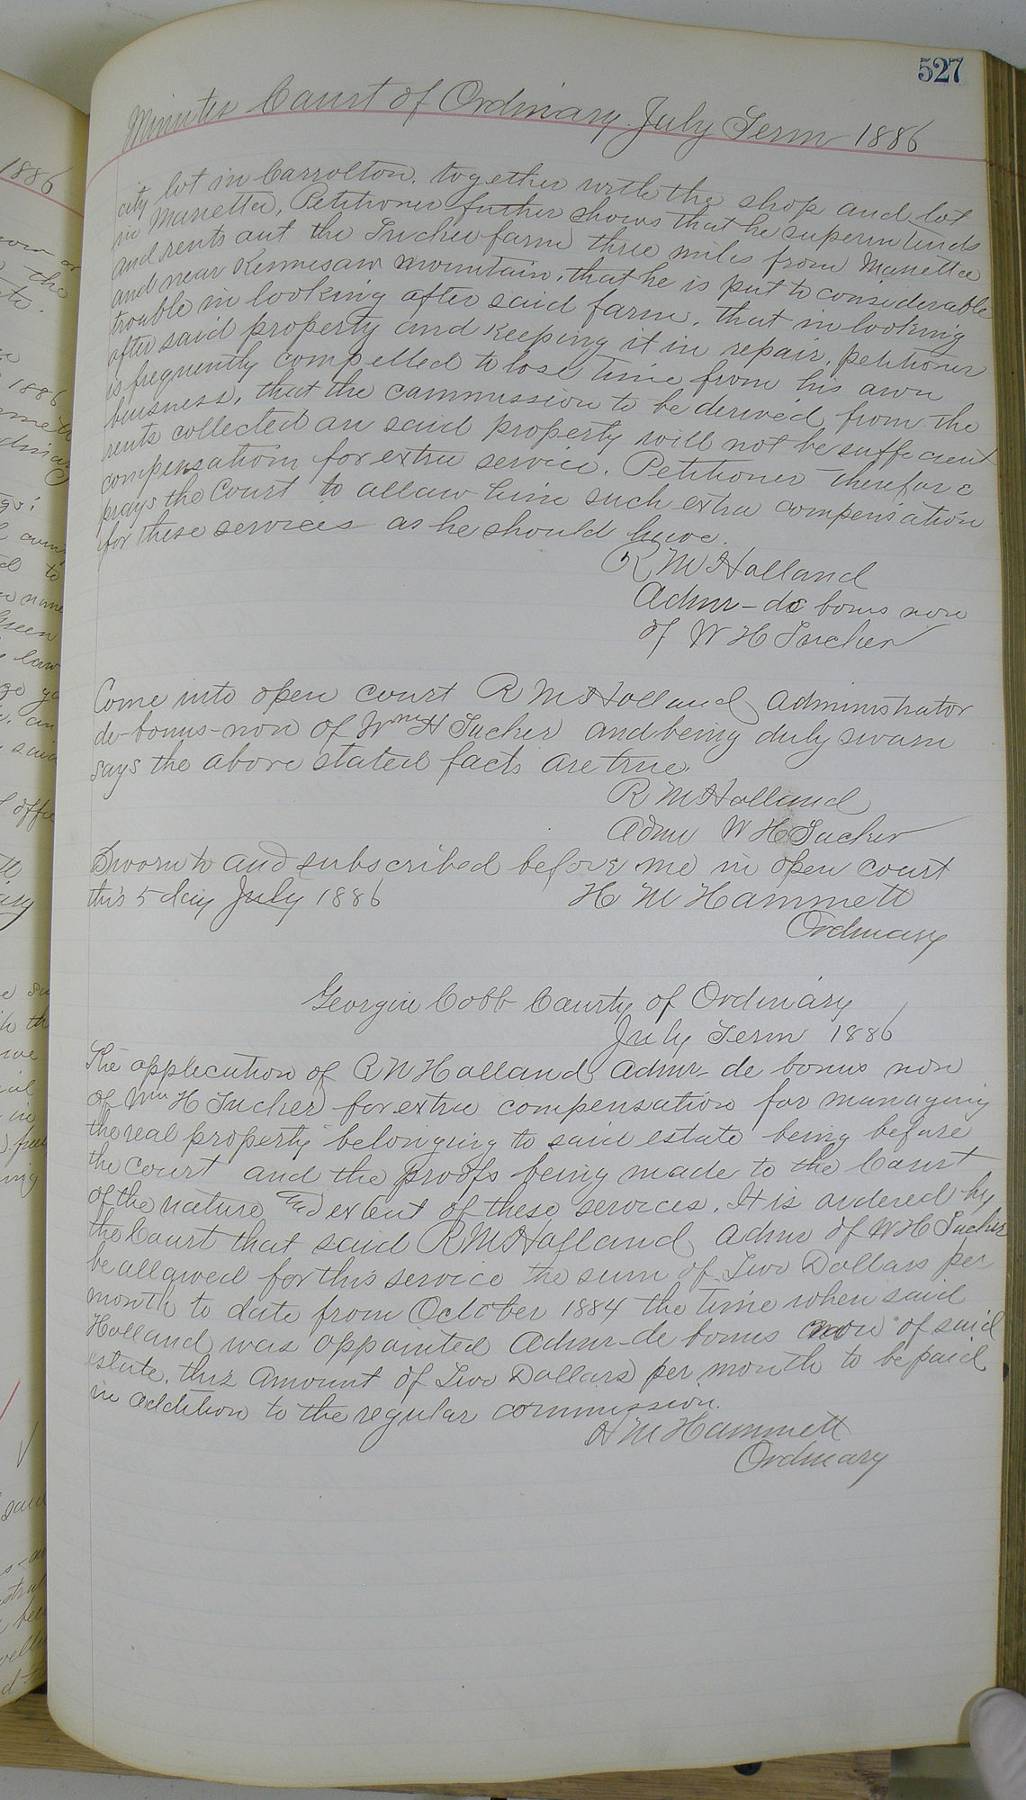 527
Minutes Court of Ordinary July Term 1886
city lot in Carrolton, together with the shop and lot
in Marietta, Petitioner further shows that he superintends
and rents out the Tucker farm three miles from Marietta
and near Kennesaw mountain, that he is put to considerable
trouble in looking after said farm, that in looking
after said property and keeping it in repair, petitioner
is frequently compelled to lose time from his own
buisness, that the commission to be derived from the
rents collected on said property will not be sufficient
compensation for extra service. Petitioner therefore
prays the Court to allow him such extra compensation
for these services as he should have.
R M Holland
Admr-de bonis non
of W H Tucker
Come into open court R M Holland administrator
de-bonus-non of Wm H Tucker and being duly sworn
says the above stated facts are true.
R M Holland
Admr W H Tucker
Sworn to and subscribed before me in open court
this 5 day July 1886 H M Hammett
Ordinary
Georgia Cobb County of Ordinary
July Term 1886
The application of R M Holland Admr-de bonus non
of Wm H Tucker for extra compensation for managing
the real property belonging to said estate being before
the court and the proofs being made to the Court
of the nature and extent of these services. It is ordered by
the Court that said R M Holland Admr of W H Tucker
be allowed for this service the sum of Two Dollars per
month to date from October 1884 the time when said
Holland was appointed Admr-de bonus non of said
estate, this amount of Two Dollars per month to be paid
in addition to the regular commission.
H M Hammett
Ordinary
1886
the
1886
Green
law
said